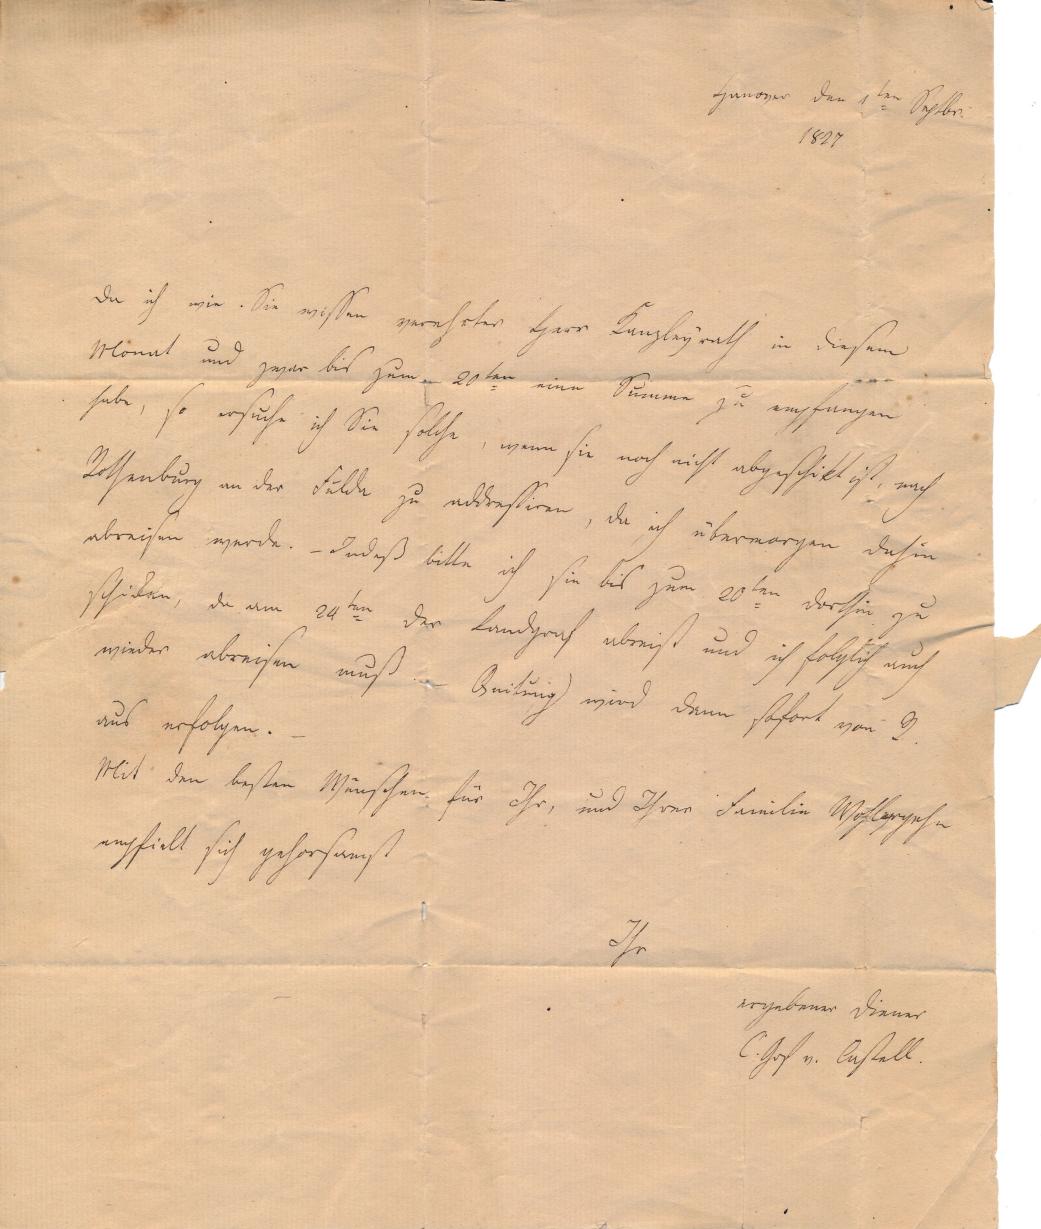 Hanover den 1ten Septbr.
1827
Da ich wie Sie wissen verehrter Herr Kanzleyrath in diesem
Monat und zwar bis zum 20ten eine Summe zu empfangen
habe, so ersuche ich Sie solche, wenn sie noch nicht abgeschikt ist, nach
Rothenburg an der Fulda zu addressiren, da ich übermorgen dahin
abreisen werde. – Indeß bitte ich sie bis zum 20ten dorthin zu
schicken, da am 24ten der Landgraf abreist und ich folglich auch
wieder abreisen muß. – Quitung wird dann sofort von R.
aus erfolgen. –
Mit den besten Wünschen für Ihr, und Ihrer Familie Wohlergehn
empfielt sich gehorsamst
Ihr
ergebener Diener
C. Grf v. Castell.